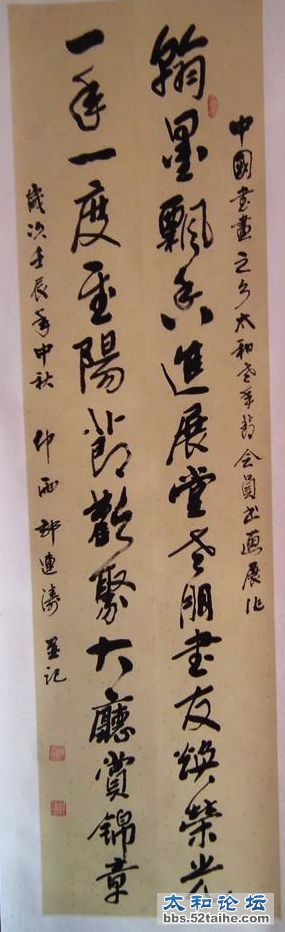 中國書畫之乡太和老年書会員書画展作
翰墨飄香進展堂老朋書友煥榮光
一年一度重陽節歡聚大廳賞錦章
歲次壬辰年中秋 仲雨 郭連濤 並記
太和论坛
bbs.52taihe.com